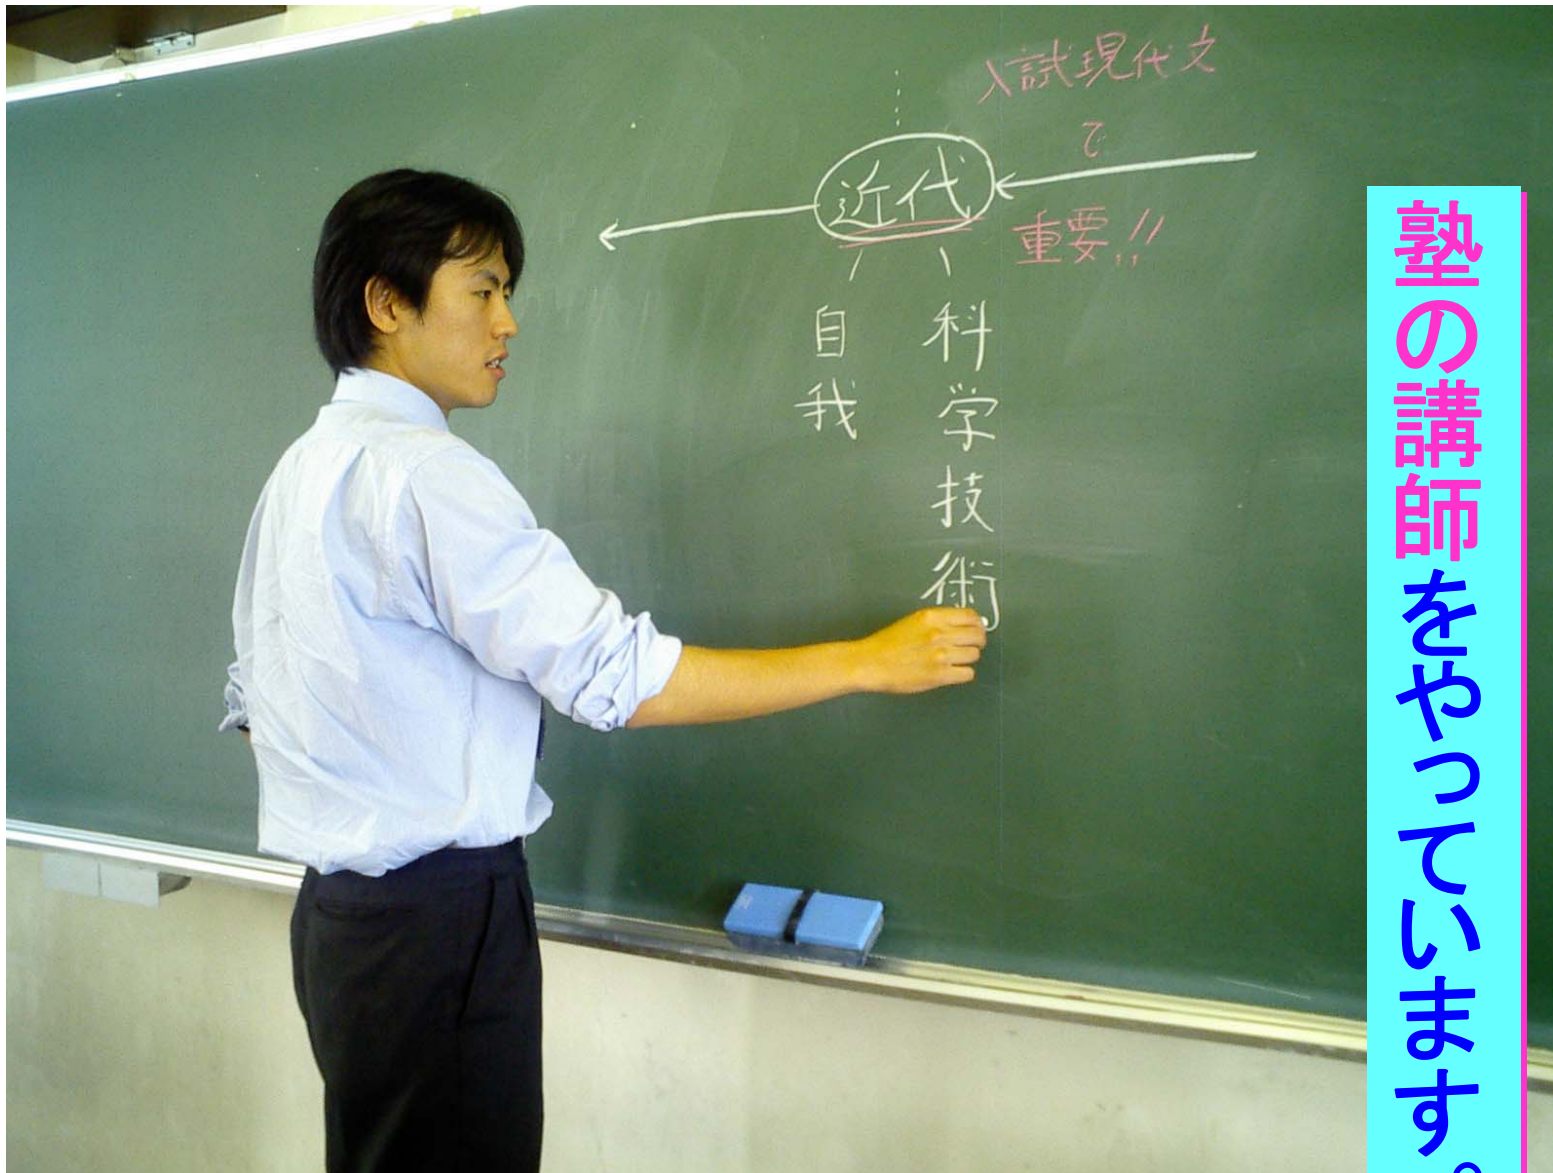 入試現代文
で
重要!!
近代
科学技術
自我
塾の講師をやっています。